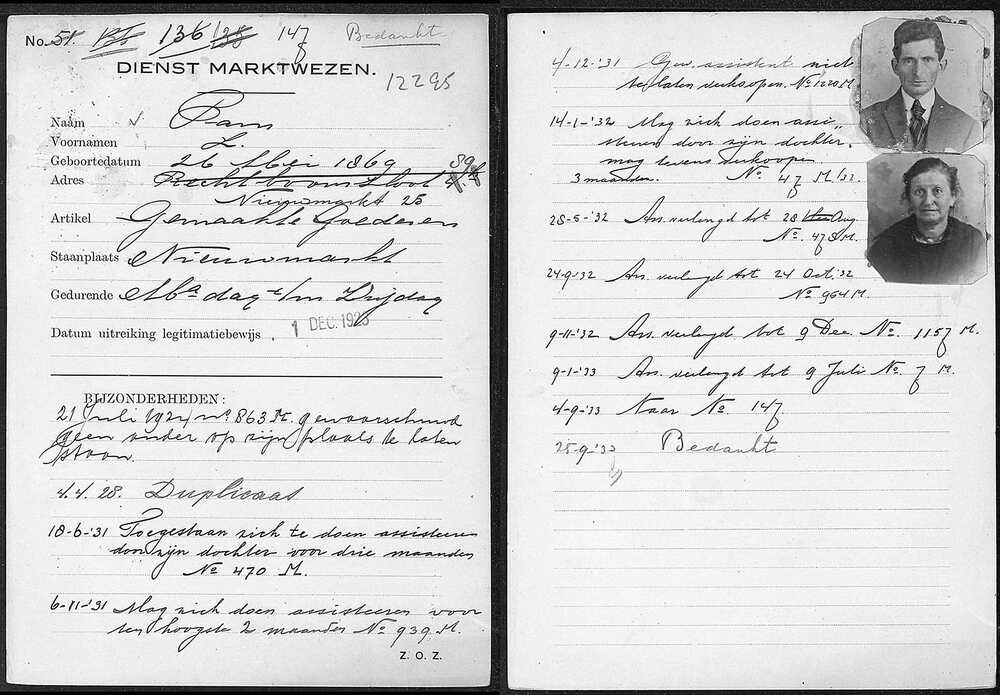 No. 51. 136 136 138 147 Bedankt
DIENST MARKTWEZEN.
12295
Naam Pam
Voornamen L.
Geboortedatum 26 Mei 1869
Adres Rechtboomsloot
Nieuwmarkt 25
Artikel Gemaakte Goederen
Staanplaats Nieuwmarkt
Gedurende Ma dag t/m Vrijdag
Datum uitreiking legitimatiebewijs, 1 DEC. 1923
BIJZONDERHEDEN:
21 Juli 1924 no. 863 M. gewaarschuwd
geen ander op zijn plaats te laten
staan.
4.4.28. Duplicaat
18-6-'31 Toegestaan zich te doen assisteeren
door zijn dochter voor drie maanden
No 470 M.
6-11-'31 Mag zich doen assisteeren voor
ten hoogste 2 maanden No 939 M.
Z. O. Z.
4-12-'31 Gew. assistent niet
te laten verkoopen. No 1220 M.
14-1-'32 Mag zich doen assi„
steren door zijn dochter,
mag tevens verkoopen
3 maanden. No. 47 M/32.
28-5-'32 Ass. verlengd tot 28 Aug.
No. 478 M.
24-9-'32 Ass. verlengd tot 24 Oct. '32
No 964 M.
9-11-'32 Ass. verlengd tot 9 Dec. No. 1157 M.
9-1-'33 Ass. verlengd tot 9 Juli No. 7 M.
4-9-'33 Naar No. 147
25-9-'33 Bedankt